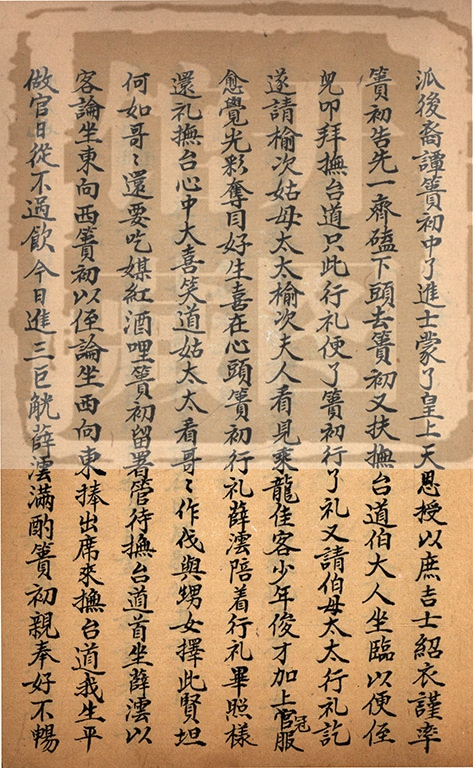 派後裔譚簣初中了進士蒙了皇上天恩授以庶吉士紹衣謹率
簣初告先一齊磕下頭去簣初又扶撫台道伯大人坐臨以便侄
兒叩拜撫台道只此行礼便了簣初行了礼又請伯母太太行礼訖
遂請榆次姑母太太榆次夫人看見乘龍佳客少年俊才加上冠服
愈覺光彩奪目好生喜在心頭簣初行礼薛澐陪着行礼畢照樣
還礼撫台心中大喜笑道姑太太看哥〻作伐與甥女擇此賢坦
何如哥〻還要吃媒紅酒哩簣初留署管待撫台道首坐薛澐以
客論坐東向西簣初以侄論坐西向東捧出席來撫台道我生平
做官日從不過飲今日進三巨觥薛澐滿酌簣初親奉好不暢